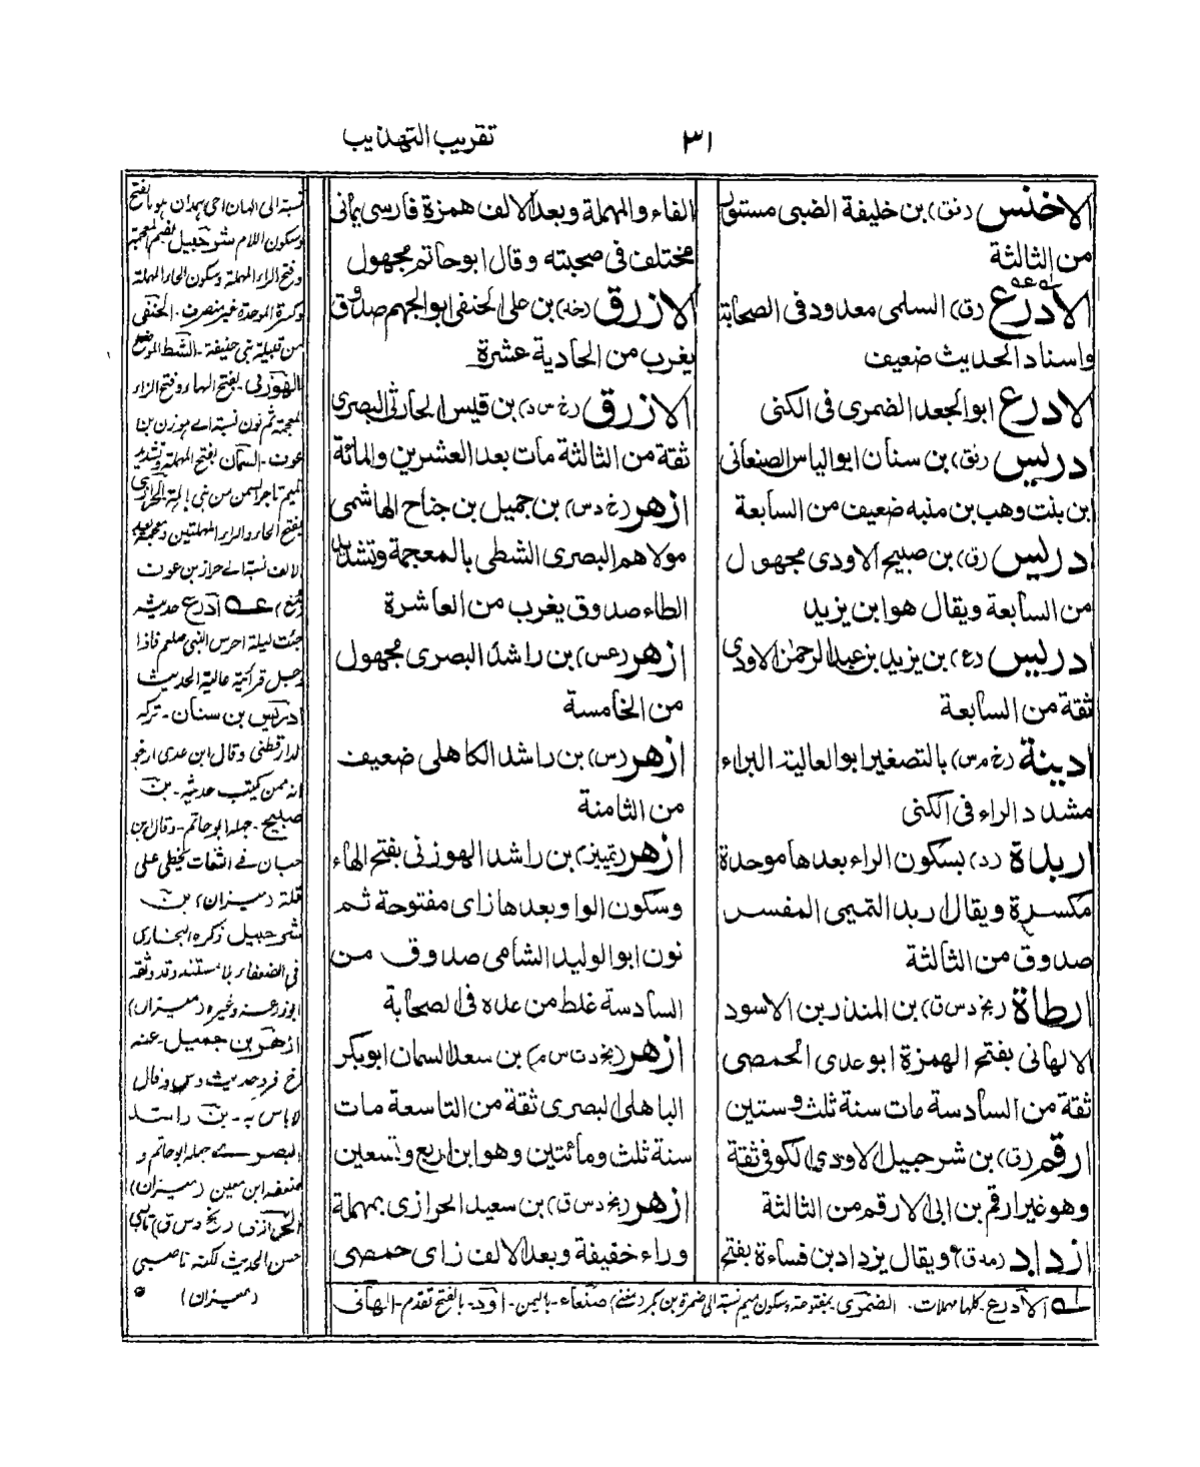 ٣١
تقريب التهذيب
الاخنس (دنق) بن خليفة الضبى مستور
من الثالثة
الادرع (ق) السلمى معدود فى الصحابة
واسناد الحديث ضعيف
الادرع ابو الجعد الضمرى فى الكنى
ادريس (فق) بن سنان ابو الياس الصنعانى
ابن بنت وهب بن منبه ضعيف من السابعة
ادريس (ق) بن صبيح الاودى مجهول
من السابعة ويقال هو ابن يزيد
ادريس (ع) بن يزيد بن عبد الرحمٰن الاودى
ثقة من السابعة
ادينة (خ م س) بالتصغير ابو العالية البراء
مشدد الراء فى الكنى
اربدة (د) بسكون الراء بعدها موحدة
مكسرة ويقال اربد التميمى المفسر
صدوق من الثالثة
ارطاة (بخ د س ق) بن المنذر بن الاسود
الالهانى بفتح الهمزة ابو عدى الحمصى
ثقة من السادسة مات سنة ثلث وستين
ارقم (ق) بن شرحبيل الاودى الكوفى ثقة
وهو غير ارقم بن ابى الارقم من الثالثة
ازداد (مد ق) ويقال يزداد بن فساءة بفتح
الفاء والمهملة وبعد الالف همزة فارسى يمانى
مختلف فى صحبته وقال ابو حاتم مجهول
الازرق (خد) بن على الحنفى ابو الجهم صدوق
يغرب من الحادية عشرة
الازرق (خ س د) بن قيس الحارثى البصرى
ثقة من الثالثة مات بعد العشرين والمائة
ازهر (خ د س) بن جميل بن جناح الهاشمى
مولاهم البصرى الشطى بالمعجمة وتشديد
الطاء صدوق يغرب من العاشرة
ازهر (عس) بن راشد البصرى مجهول
من الخامسة
ازهر (س) بن راشد الكاهلى ضعيف
من الثامنة
ازهر (تمييز) بن راشد الهوزنى بفتح الهاء
وسكون الواو بعدها زاى مفتوحة ثم
نون ابو الوليد الشامى صدوق من
السادسة غلط من عده فى الصحابة
ازهر (خ د ت س م) بن سعد السمان ابو بكر
الباهلى البصرى ثقة من التاسعة مات
سنة ثلث ومأئتين وهو ابن اربع وتسعين
ازهر (بخ د س ق) بن سعيد الحرازى بمهملة
وراء خفيفة وبعد الالف زاى حمصى
نسبة الى الهان اخى همدان هو بالفتح
وسكون اللام شرحبيل بضم المعجمة
وفتح الراء المهملة وسكون الحاء المهملة
وكسرة الموحدة غير منصرف - الحنفى
من قبيلة بنى حنيفة - الشط الموضع
الهوزنى بفتح الهاء وفتح الزاء
المعجمة ثم نون نسبة اے هوزن بن
عوف - السمان بفتح المهملة وتشديد
الميم تاجر السمن من بنى الحرازى
بفتح الحاء والراء المهملتين ومعجمة بعد
الالف نسبة الے حراز بن عوف
(مغ) عه ادرع حديثه
جئت ليلة احرس النبى صلعم فاذا
رجل قرأتيه عالية الحديث
ادريس بن سنان - تركه
الدارقطنى وقال ابن عدى ارجو
انه ممن يكتب حديثه - بن
صبيح - جهله ابو حاتم - وقال ابن
حبان فے الثقات يخطى على
قلة (ميزان) بن
شرحبيل ذكره البخارى
فى الضعفاء بلا مستند وقد وثقه
ابو زرعة وغيره (ميزان)
ازهر بن جميل - عنه
خ فرد حديث وس وقال
لاباس به - بن راشد
البصرے جهله ابو حاتم و
ضعفه ابن معين (ميزان)
الحرازى (بخ د س ق) تابعى
حسن الحديث لكنه ناصبى
(ميزان)
لـه الادرع - كلها مهملات . الضمرى بمفتوحة وسكون ميم نسبة الى ضمرة بن بكر (مغنى) صنعاء - باليمن - اود - بالفتح تقدم - الهانى